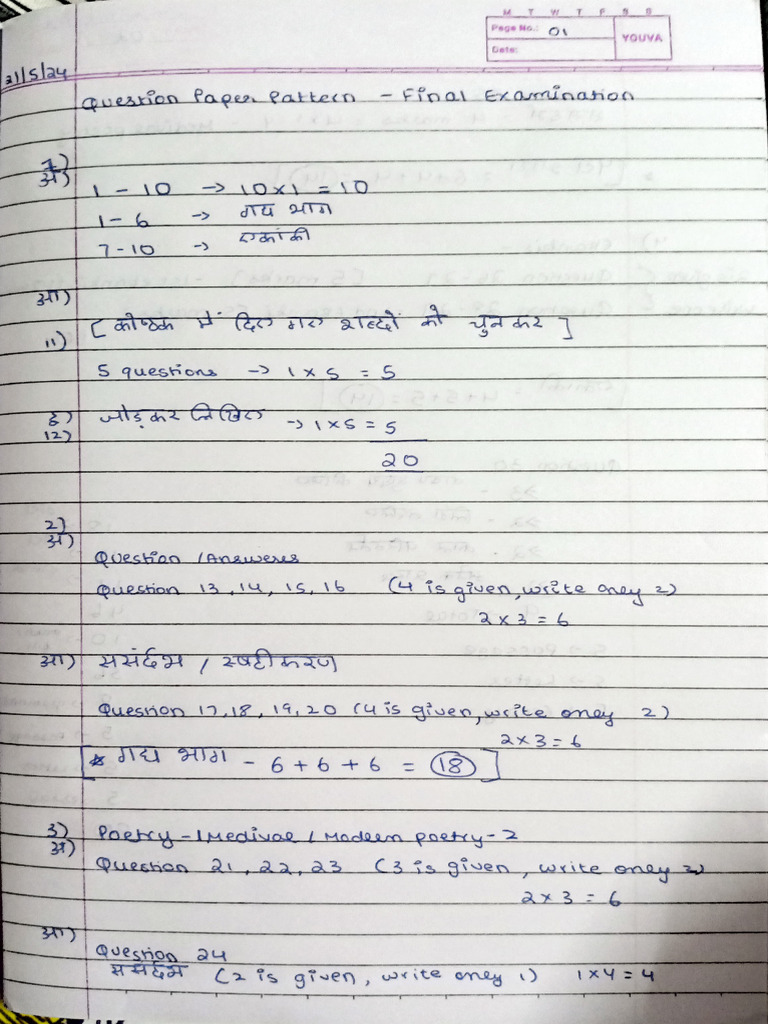 M T W T F S S
Page No.: 01
YOUVA
Date:
21/5/24
Question Paper Pattern - Final Examination
1)
अ)
1 - 10 → 10 x 1 = 10
1 - 6 → गद्य भाग
7 - 10 → एकांकी
आ)
[ कोष्ठक में दिए गए शब्दों को चुनकर ]
11)
5 questions → 1 x 5 = 5
इ) जोड़कर लिखिए → 1 x 5 = 5
12)
20
2)
अ)
Question / Answeres
Question 13, 14, 15, 16 (4 is given, write only 2)
2 x 3 = 6
आ) ससंर्दभ / स्पष्टीकरण
Question 17, 18, 19, 20 (4 is given, write only 2)
2 x 3 = 6
[ * गद्य भाग - 6 + 6 + 6 = 18 ]
3) Poetry - 1 Medival / Modern poetry - 2
अ)
Question 21, 22, 23 (3 is given, write only 2)
2 x 3 = 6
आ)
Question 24
ससंर्दभ (2 is given, write only 1) 1 x 4 = 4